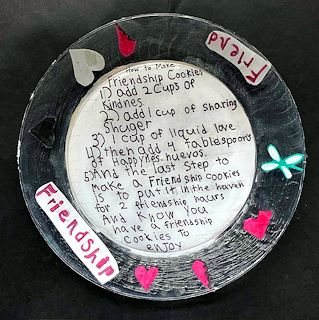 How to Make
Friendship Cookies
1) add 2 Cups of
Kindnes
2) add 1 cup of sharing
Shuger
3) 1 cup of liquid love
4) Then add 4 tablespoons
of Happynes huevos.
5) And the last step to
Make a Friendship cookies
is to put it in the heaven
for 2 friendship hours
And Know You
have a friendship
cookies to
enjoy
Friend
Friendship